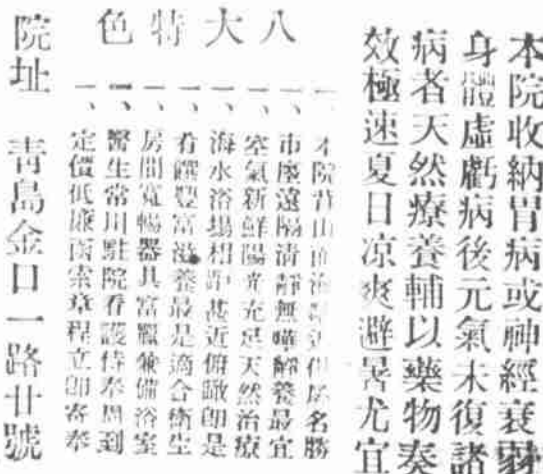 本院收納胃病或神經衰弱
身體虛虧病後元氣未復諸
病者天然療養輔以藥物奏
效極速夏日凉爽避暑尤宜
八大特色
一、本院背山面海名勝
一、市廛遠隔清靜無嘩靜養最宜
一、空氣新鮮陽光充足天然治療
一、海水浴場相距甚近俯瞰卽是
一、看饌豐富滋養最是適合衛生
一、房間寬暢器具富麗兼備浴室
一、醫生常川駐院看護侍奉周到
一、定價低廉函索章程立卽寄奉
院址 青島金口一路廿號